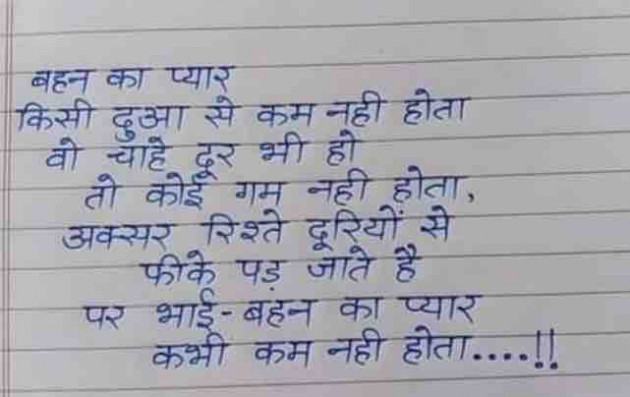 बहन का प्यार
किसी दुआ से कम नही होता
वो चाहे दूर भी हो
तो कोई गम नही होता,
अक्सर रिश्ते दूरियों से
फीके पड़ जाते है
पर भाई-बहन का प्यार
कभी कम नही होता....!!